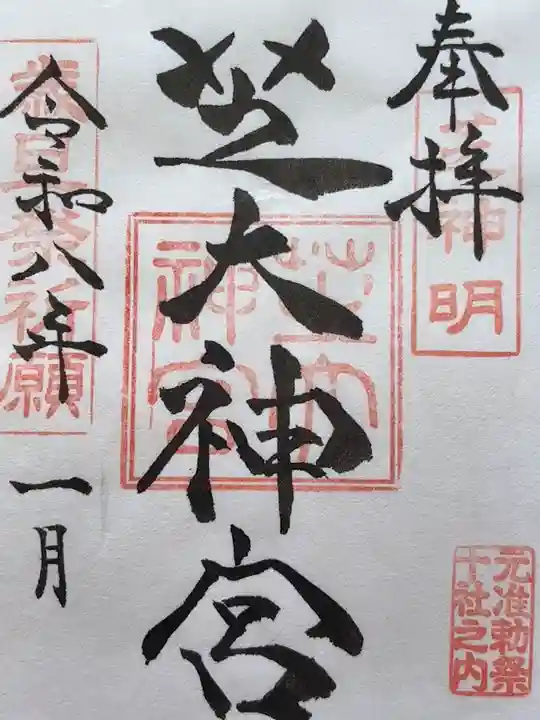 奉拝
神明
芝大神宮
芝大神宮
歳旦祭祈願
令和八年
一月
元准勅祭
十社之内